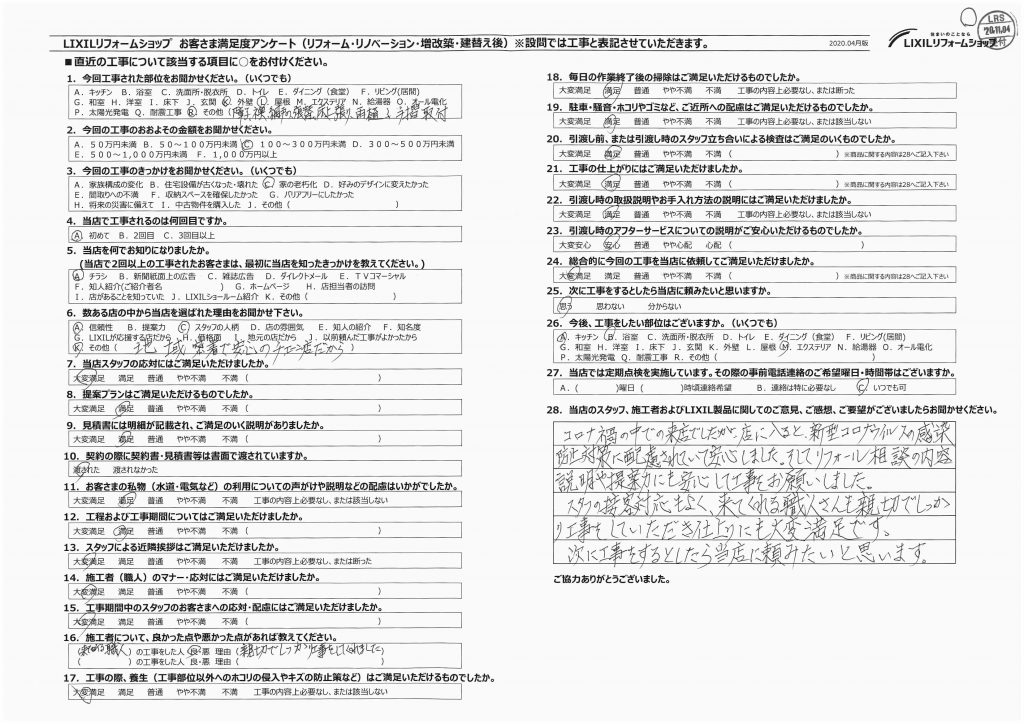 LIXILリフォームショップ お客さま満足度アンケート（リフォーム・リノベーション・増改築・建替え後）※設問では工事と表記させていただきます。
2020.04月版
住まいのことなら
LIXILリフォームショップ
LRS
'20.11.04
受付
■直近の工事について該当する項目に○をお付けください。
1．今回工事された部位をお聞かせください。（いくつでも）
A．キッチン B．浴室 C．洗面所・脱衣所 D．トイレ E．ダイニング（食堂） F．リビング(居間)
G．和室 H．洋室 I．床下 J．玄関 K．外壁 L．屋根 M．エクステリア N．給湯器 O．オール電化
P．太陽光発電 Q．耐震工事 R．その他（ 雨樋と手摺取付
2．今回の工事のおおよその金額をお聞かせください。
A．５０万円未満 B．５０～１００万円未満 C．１００～３００万円未満 D．３００～５００万円未満
E．５００～１,０００万円未満 F．１,０００万円以上
3．今回の工事のきっかけをお聞かせください。（いくつでも）
A．家族構成の変化 B．住宅設備が古くなった・壊れた C．家の老朽化 D．好みのデザインに変えたかった
E．間取りへの不満 F．収納スペースを確保したかった G．バリアフリーにしたかった
H．将来の災害に備えて I．中古物件を購入した J．その他（ ）
4．当店で工事されるのは何回目ですか。
A．初めて B．2回目 C．3回目以上
5．当店を何でお知りになりましたか。
(当店で2回以上の工事されたお客さまは、最初に当店を知ったきっかけを教えてください。)
A．チラシ B．新聞紙面上の広告 C．雑誌広告 D．ダイレクトメール E．TVコマーシャル
F．知人紹介(ご紹介者名 ) G．ホームページ H．店担当者の訪問
I．店があることを知っていた J．LIXILショールーム紹介 K．その他（ ）
6．数ある店の中から当店を選ばれた理由をお聞かせ下さい。
A．信頼性 B．提案力 C．スタッフの人柄 D．店の雰囲気 E．知人の紹介 F．知名度
G．LIXILが応援する店だから H．価格面 I．地元の店だから J．以前頼んだ工事がよかったから
K．その他（ 地域密着で安心のチェーン店だから ）
7．当店スタッフの応対にはご満足いただけましたか。
大変満足 満足 普通 やや不満 不満（ ）
8．提案プランはご満足いただけるものでしたか。
大変満足 満足 普通 やや不満 不満（ ）
9．見積書には明細が記載され、ご満足のいく説明がありましたか。
大変満足 満足 普通 やや不満 不満（ ）
10．契約の際に契約書・見積書等は書面で渡されていますか。
渡された 渡されなかった
11．お客さまの私物（水道・電気など）の利用についての声がけや説明などの配慮はいかがでしたか。
大変満足 満足 普通 やや不満 不満 工事の内容上必要なし、または該当しない
12．工程および工事期間についてはご満足いただけましたか。
大変満足 満足 普通 やや不満 不満（ ）
13．スタッフによる近隣挨拶はご満足いただけましたか。
大変満足 満足 普通 やや不満 不満 工事の内容上必要なし、または断った
14．施工者（職人）のマナー・応対にはご満足いただけましたか。
大変満足 満足 普通 やや不満 不満（ ）
15．工事期間中のスタッフのお客さまへの応対・配慮にはご満足いただけましたか。
大変満足 満足 普通 やや不満 不満（ ）
16．施工者について、良かった点や悪かった点があれば教えてください。
（ 職人 ）の工事をした人 良・悪 理由（ 親切でしっかり工事をしてくれました ）
（ ）の工事をした人 良・悪 理由（ ）
17．工事の際、養生（工事部位以外へのホコリの侵入やキズの防止策など）はご満足いただけるものでしたか。
大変満足 満足 普通 やや不満 不満 工事の内容上必要なし、または該当しない
18．毎日の作業終了後の掃除はご満足いただけるものでしたか。
大変満足 満足 普通 やや不満 不満 工事の内容上必要なし、または断った
19．駐車・騒音・ホコリやゴミなど、ご近所への配慮はご満足いただけるものでしたか。
大変満足 満足 普通 やや不満 不満 工事の内容上必要なし、または該当しない
20．引渡し前、または引渡し時のスタッフ立ち合いによる検査はご満足のいくものでしたか。
大変満足 満足 普通 やや不満 不満（ ）※商品に関する内容は28へご記入下さい
21．工事の仕上がりにはご満足いただけましたか。
大変満足 満足 普通 やや不満 不満（ ）※商品に関する内容は28へご記入下さい
22．引渡し時の取扱説明やお手入れ方法の説明にはご満足いただけましたか。
大変満足 満足 普通 やや不満 不満 工事の内容上必要なし、または該当しない
23．引渡し時のアフターサービスについての説明がご安心いただけるものでしたか。
大変安心 安心 普通 やや心配 心配（ ）
24．総合的に今回の工事を当店に依頼してご満足いただけましたか。
大変満足 満足 普通 やや不満 不満（ ）※商品に関する内容は28へご記入下さい
25．次に工事をするとしたら当店に頼みたいと思いますか。
思う 思わない 分からない
26．今後、工事をしたい部位はございますか。（いくつでも）
A．キッチン B．浴室 C．洗面所・脱衣所 D．トイレ E．ダイニング（食堂） F．リビング(居間)
G．和室 H．洋室 I．床下 J．玄関 K．外壁 L．屋根 M．エクステリア N．給湯器 O．オール電化
P．太陽光発電 Q．耐震工事 R．その他（ ）
27．当店では定期点検を実施しています。その際の事前電話連絡のご希望曜日・時間帯はございますか。
A．（ ）曜日（ ）時頃連絡希望 B．連絡は特に必要なし C．いつでも可
28．当店のスタッフ、施工者およびLIXIL製品に関してのご意見、ご感想、ご要望がございましたらお聞かせください。
コロナ禍の中での来店でしたが、店に入ると、新型コロナウイルスの感染
防止対策に配慮されていて安心しました。そしてリフォーム相談の内容
説明や提案力にも安心して工事をお願いしました。
スタッフの接客対応もよく、来てくれる職人さんも親切でしっか
り工事をしていただき仕上りにも大変満足です。
次に工事をするとしたら当店に頼みたいと思います。
ご協力ありがとうございました。